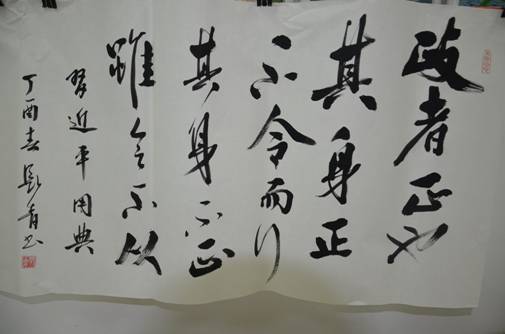 政者正也
其身正
不令而行
其身不正
雖令不从
習近平用典
丁酉春